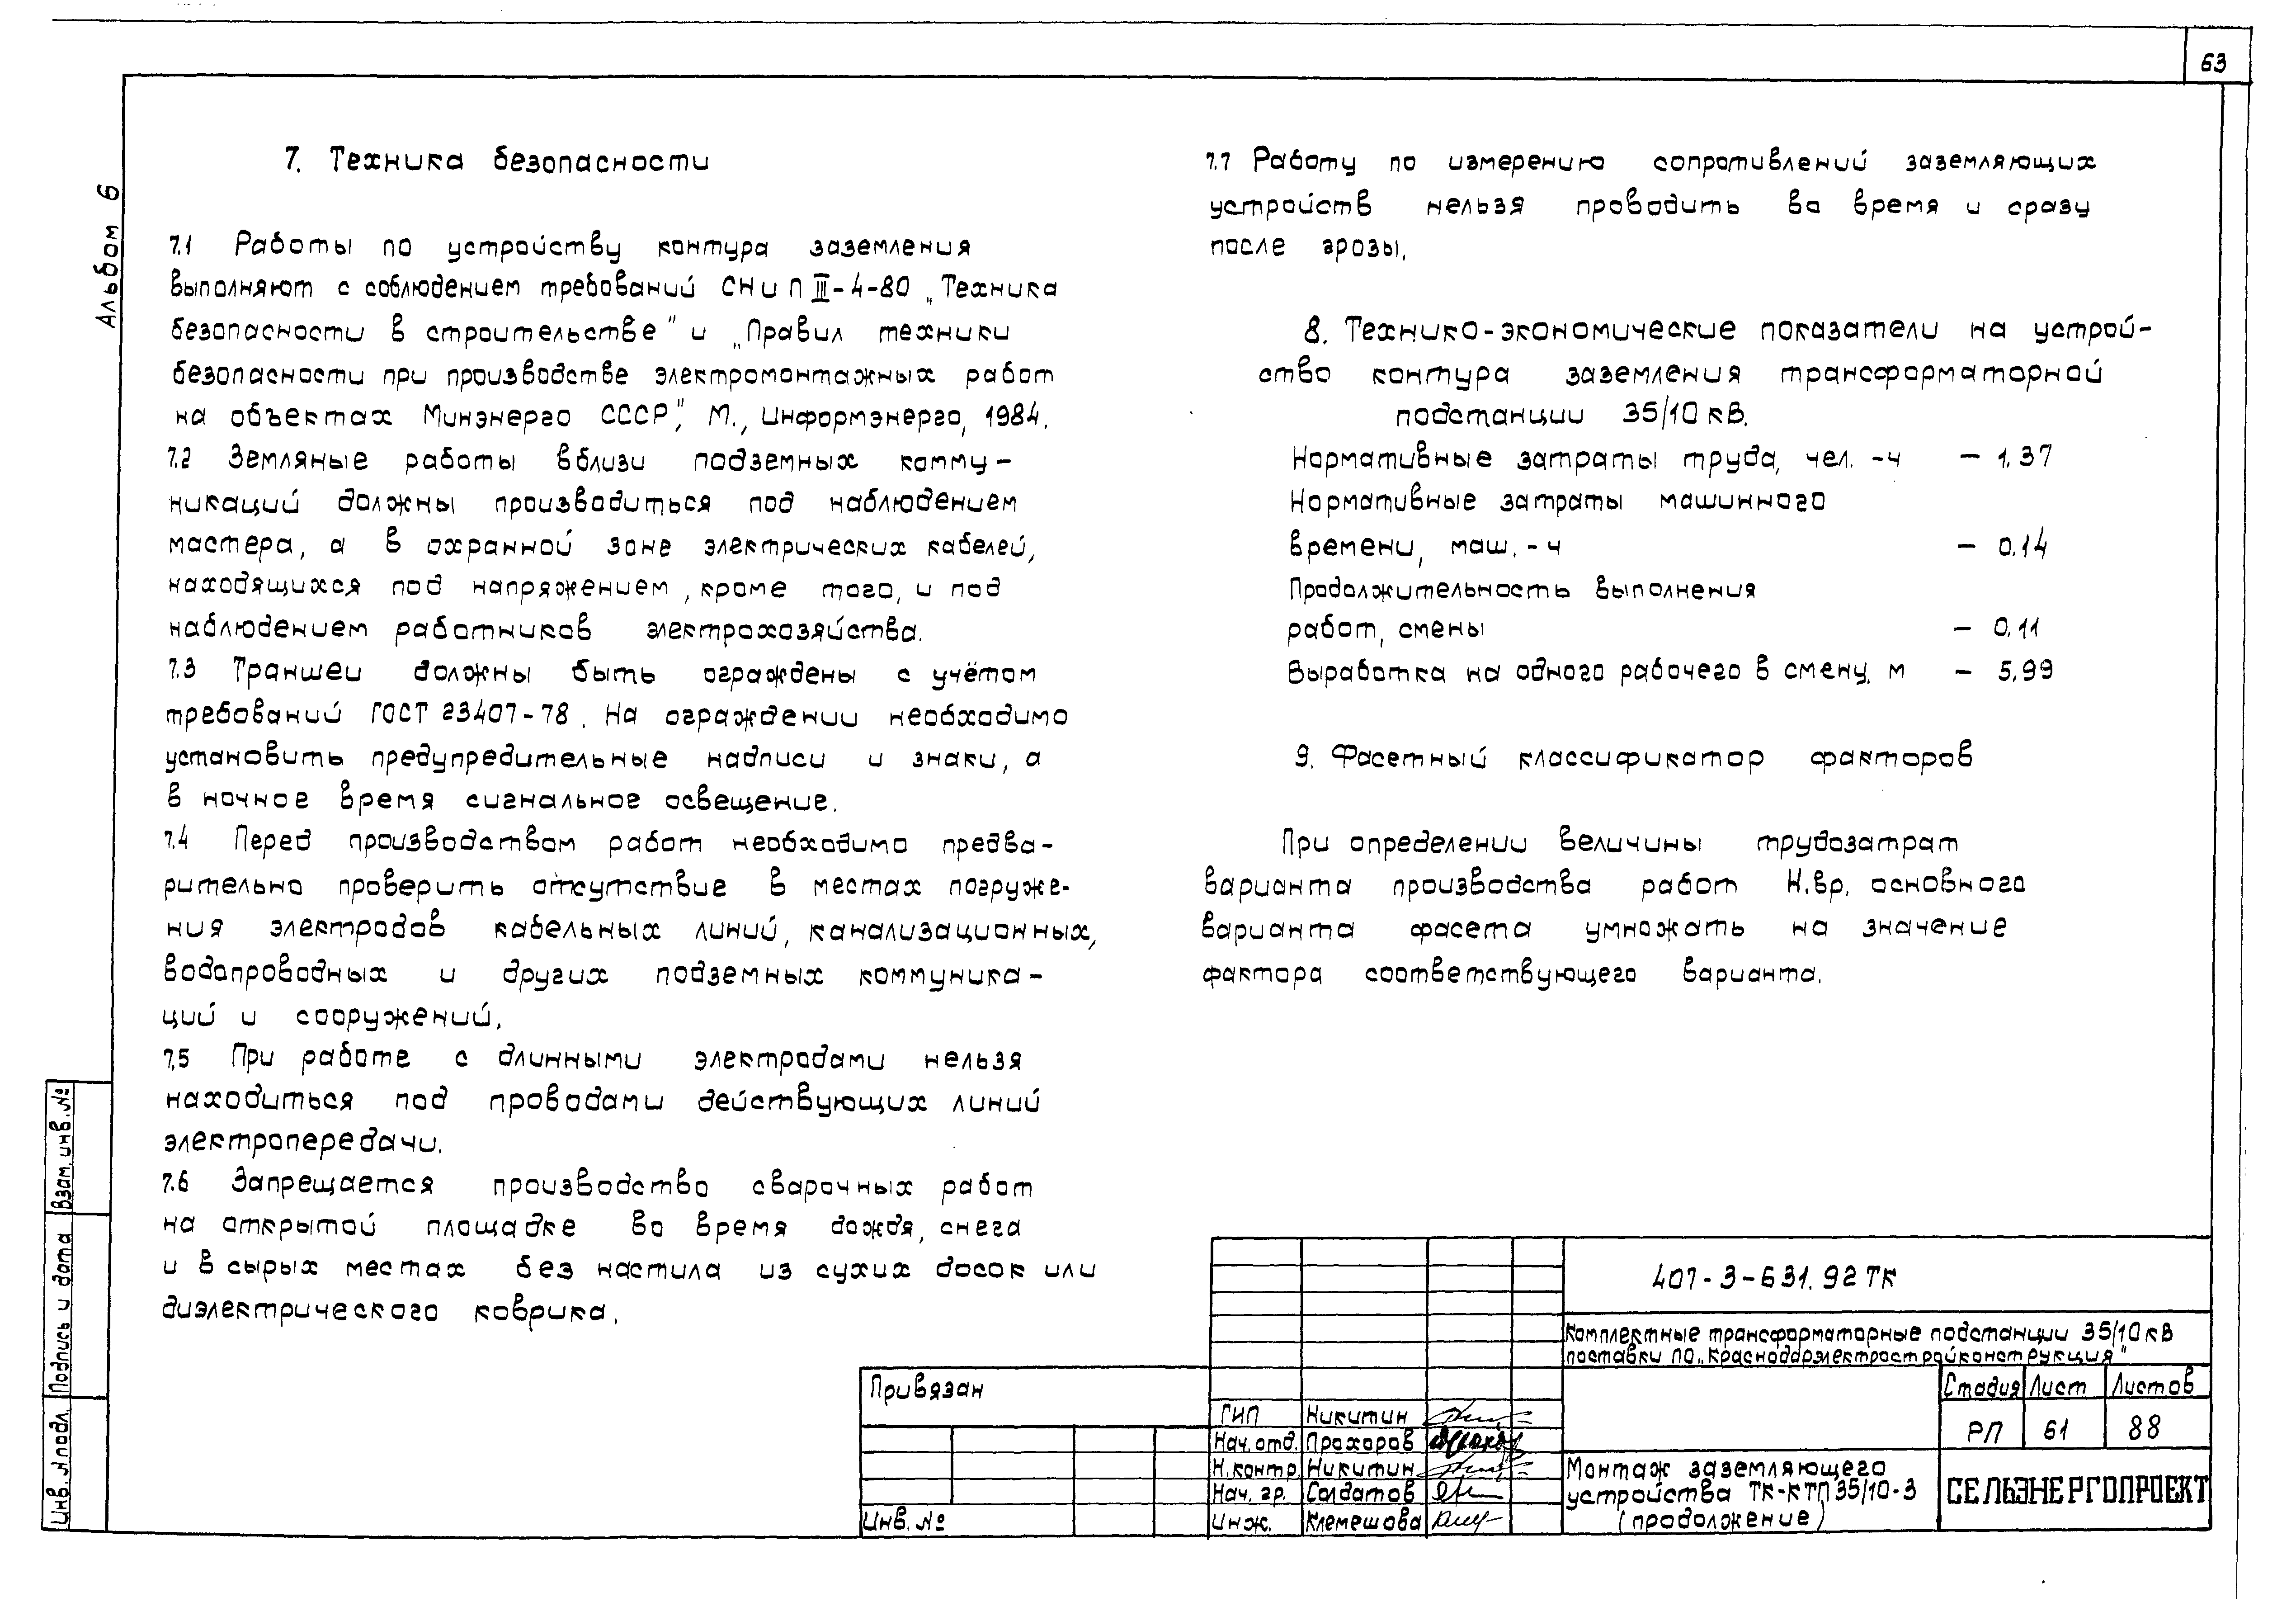 63
Альбом 6
7. Техника безопасности
7.1 Работы по устройству контура заземления
выполняют с соблюдением требований СНиП III-4-80 „Техника
безопасности в строительстве" и „Правил техники
безопасности при производстве электромонтажных работ
на объектах Минэнерго СССР", М., Информэнерго, 1984.
7.2 Земляные работы вблизи подземных комму-
никаций должны производиться под наблюдением
мастера, а в охранной зоне электрических кабелей,
находящихся под напряжением, кроме того, и под
наблюдением работников электрохозяйства.
7.3 Траншеи должны быть ограждены с учётом
требований ГОСТ 23407-78. На ограждении необходимо
установить предупредительные надписи и знаки, а
в ночное время сигнальное освещение.
7.4 Перед производством работ необходимо предва-
рительно проверить отсутствие в местах погруже-
ния электродов кабельных линий, канализационных,
водопроводных и других подземных коммуника-
ций и сооружений.
7.5 При работе с длинными электродами нельзя
находиться под проводами действующих линий
электропередачи.
7.6 Запрещается производство сварочных работ
на открытой площадке во время дождя, снега
и в сырых местах без настила из сухих досок или
диэлектрического коврика.
7.7 Работу по измерению сопротивлений заземляющих
устройств нельзя проводить во время и сразу
после грозы.
8. Технико-экономические показатели на устрой-
ство контура заземления трансформаторной
подстанции 35/10 кВ.
Нормативные затраты труда, чел.-ч — 1.37
Нормативные затраты машинного
времени, маш.-ч — 0.14
Продолжительность выполнения
работ, смены — 0.11
Выработка на одного рабочего в смену, м — 5,99
9. Фасетный классификатор факторов
При определении величины трудозатрат
варианта производства работ Н.вр. основного
варианта фасета умножать на значение
фактора соответствующего варианта.
Взам. инв. №
Подпись и дата
Инв. № подл.
Привязан
Инв. №
ГИП Никитин
Нач. отд. Прохоров
Н. контр. Никитин
Нач. гр. Солдатов
Инж. Клемешова
407-3-631.92 ТК
Комплектные трансформаторные подстанции 35/10 кВ
поставки ПО „Краснодарэлектростройконструкция"
Стадия Лист Листов
РП 61 88
Монтаж заземляющего
устройства ТК-КТП 35/10-3
(продолжение)
СЕЛЬЭНЕРГОПРОЕКТ